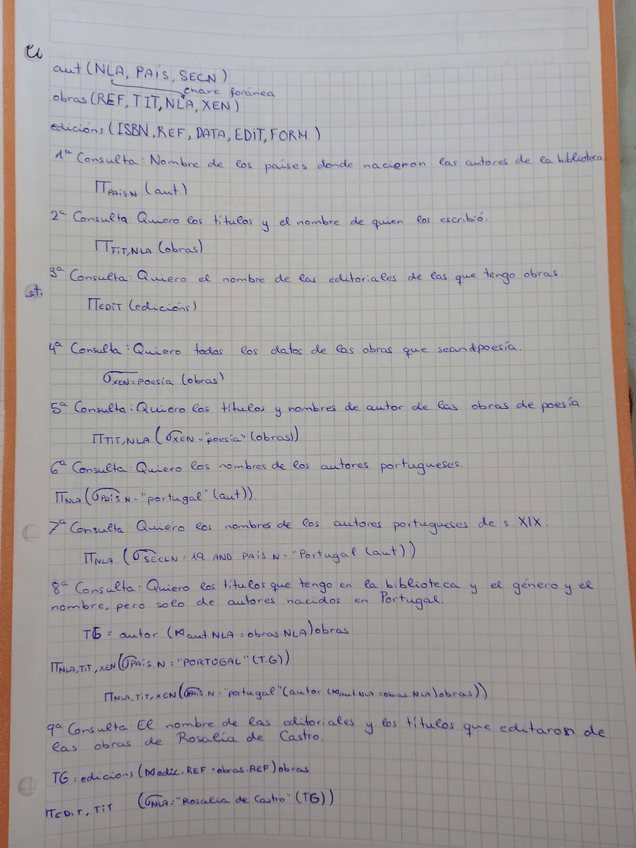 aut (NLA, PAÍS, SECN)
chave foránea
obras (REF, TIT, NLA, XEN)
edicións (ISBN, REF, DATA, EDIT, FORM)
1ª Consulta: Nombre de los países donde nacieron las autores de la biblioteca
π PAÍS N (aut)
2ª Consulta: Quiero los títulos y el nombre de quien los escribió.
π TIT, NLA (obras)
3ª Consulta: Quiero el nombre de las editoriales de las que tengo obras.
π EDIT (edicións)
4ª Consulta: Quiero todos los datos de las obras que sean poesía.
σ XEN = poesía (obras)
5ª Consulta: Quiero los títulos y nombres de autor de las obras de poesía
π TIT, NLA (σ XEN = "poesía" (obras))
6ª Consulta: Quiero los nombres de los autores portugueses.
π NLA (σ PAÍS N = "portugal" (aut))
7ª Consulta: Quiero los nombres de los autores portugueses de s XIX.
π NLA (σ SECLN = 19 AND PAÍS N = "Portugal (aut))
8ª Consulta: Quiero los títulos que tengo en la biblioteca y el género y el
nombre, pero solo de autores nacidos en Portugal.
TG = autor (⋈ aut.NLA = obras.NLA) obras
π NLA, TIT, XEN (σ PAÍS N = "PORTUGAL" (T.G))
π NLA, TIT, XEN (σ PAÍS N = "portugal" (autor (⋈ aut.NLA = obras.NLA) obras))
9ª Consulta: El nombre de las editoriales y los títulos que editaron de
las obras de Rosalía de Castro.
TG = edicions (⋈ edic.REF = obras.REF) obras
π EDIT, TIT (σ NLA = "Rosalia de Castro" (TG))